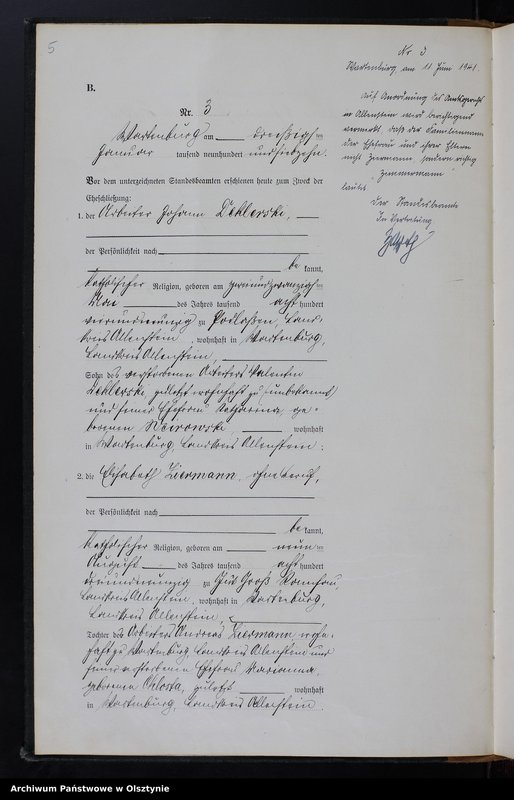 5
B.
Nr. 3
Wartenburg am dreißigsten
Januar tausend neunhundert undsiebzehn.
Vor dem unterzeichneten Standesbeamten erschienen heute zum Zweck der
Eheschließung:
1. der Arbeiter Johann Deklerski,
der Persönlichkeit nach
be kannt,
katholischer Religion, geboren am zweiundzwanzigsten
Mai des Jahres tausend acht hundert
vierundneunzig zu Podlaßen, Land-
kreis Allenstein, wohnhaft in Wartenburg,
Landkreis Allenstein,
Sohn des verstorbenen Arbeiters Valentin
Deklerski, zuletzt wohnhaft zu (unbekannt)
und seiner Ehefrau Katharina, ge-
borenen wohnhaft
in Wartenburg, Landkreis Allenstein;
2. die Elisabeth Ziermann, ohne Beruf,
der Persönlichkeit nach
be kannt,
katholischer Religion, geboren am neunten
August des Jahres tausend acht hundert
dreiundneunzig zu Gut Groß
Landkreis Allenstein, wohnhaft in Wartenburg,
Landkreis Allenstein,
Tochter des Arbeiters Andreas Ziermann wohn-
haft zu Wartenburg, Landkreis Allenstein und
seiner verstorbenen Ehefrau Marianna,
geborenen Chlosta, zuletzt wohnhaft
in Wartenburg, Landkreis Allenstein.
Nr. 3
Wartenburg, am 11. Juni 1941.
Auf Anordnung des Amtsgerichts
in Allenstein wird berichtigend
vermerkt, daß der Familienname
der Ehefrau und ihrer Eltern
nicht Ziermann sondern richtig
"Zimmermann"
lautet.
Der Standesbeamte
In Vertretung
Archiwum Państwowe w Olsztynie